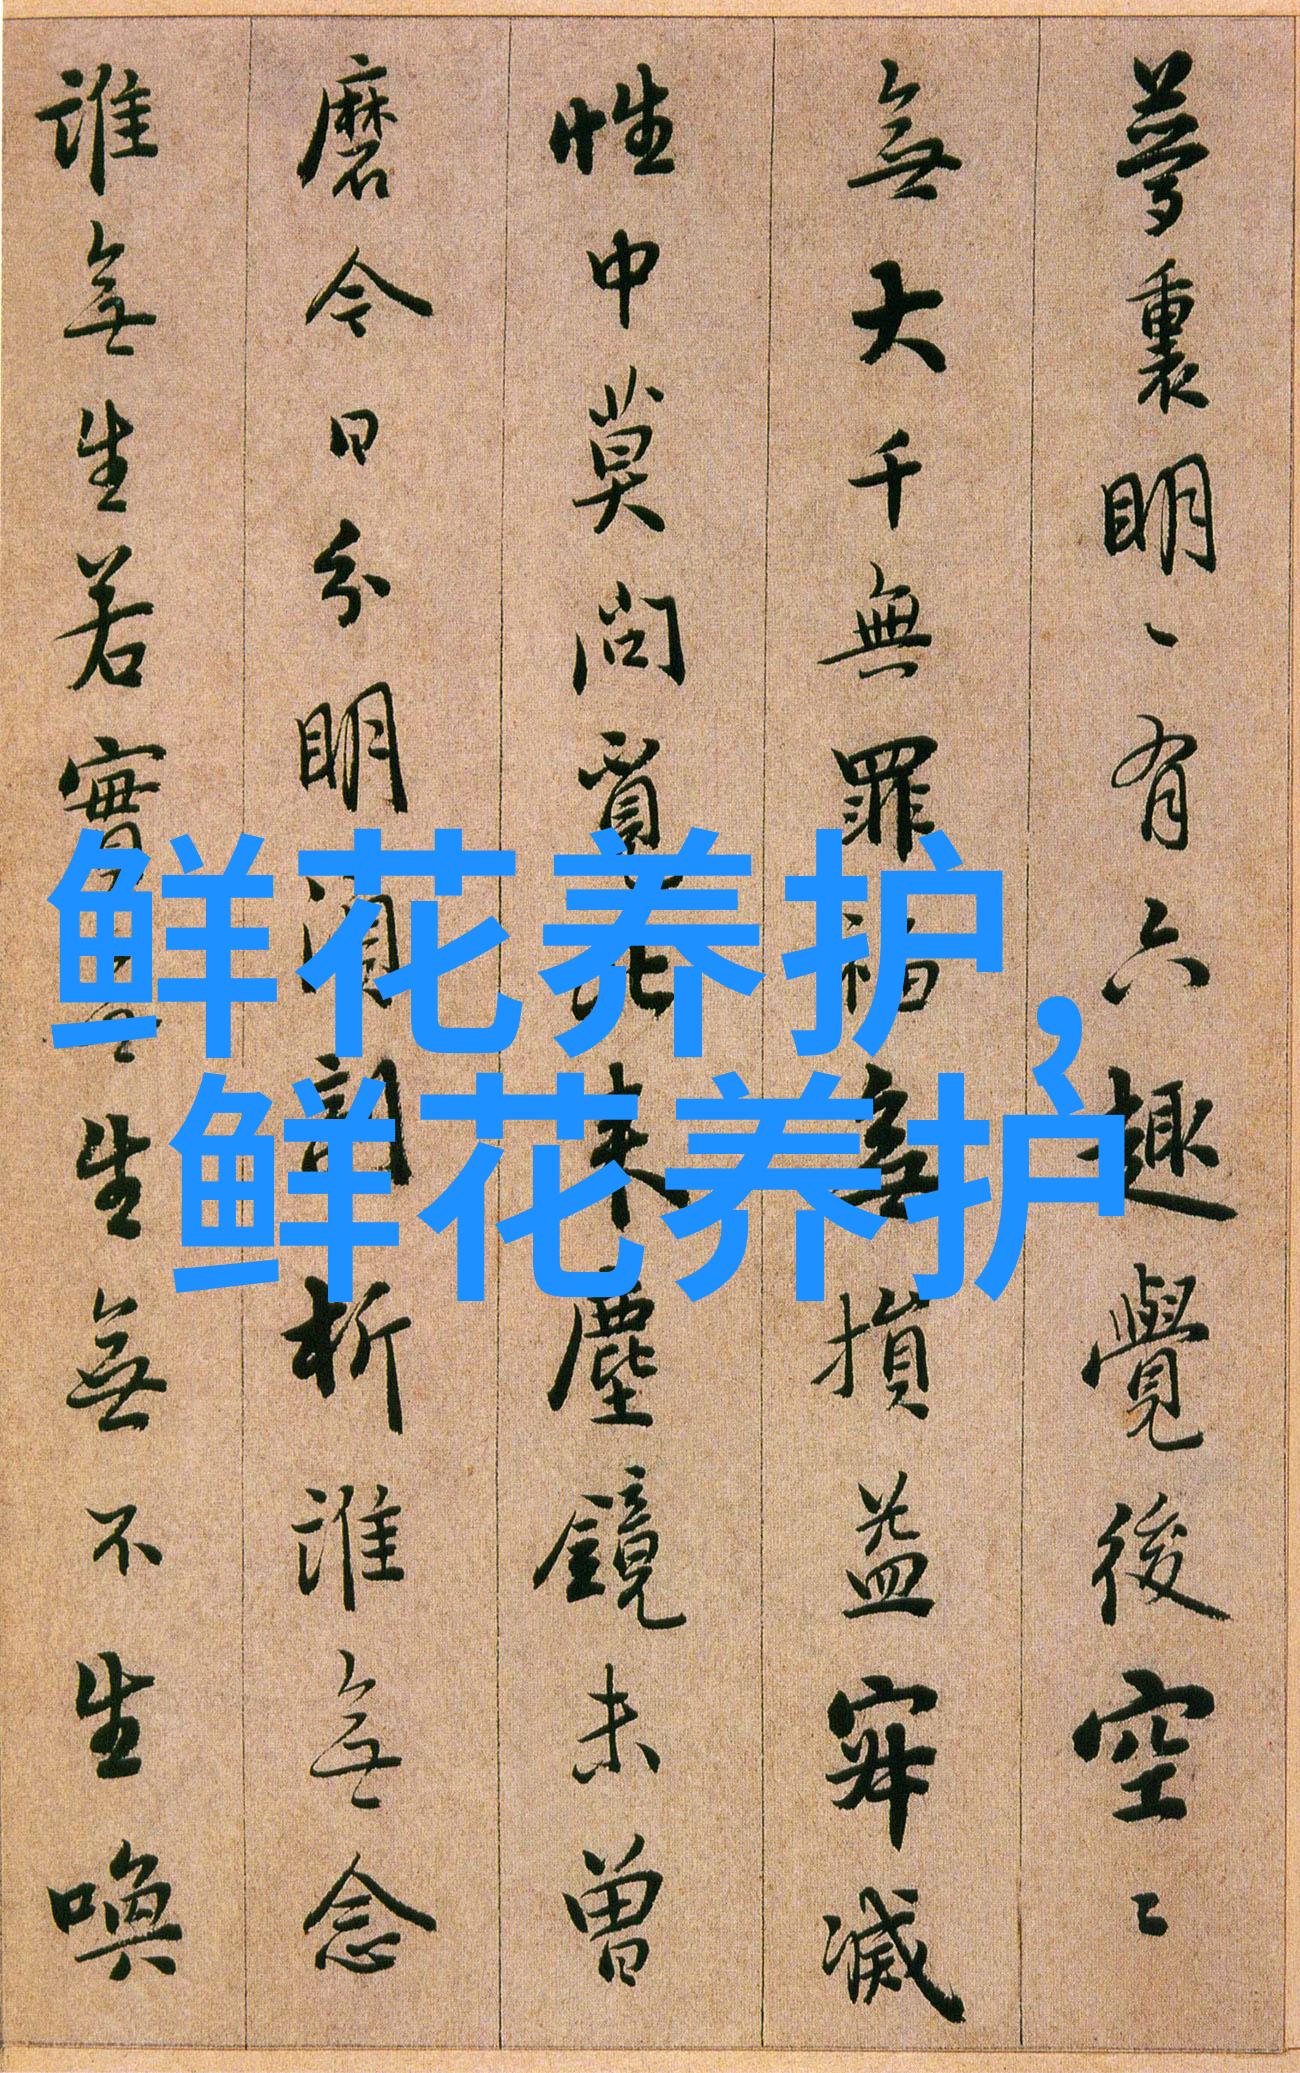 夢裏明〻有六趣覺後空〻
無大千無罪福無損益寂滅
性中莫問覓比來塵鏡未曾
磨今日分明須剖析誰無念
誰無生若實無生無不生喚
鲜花养护，
鲜花养护